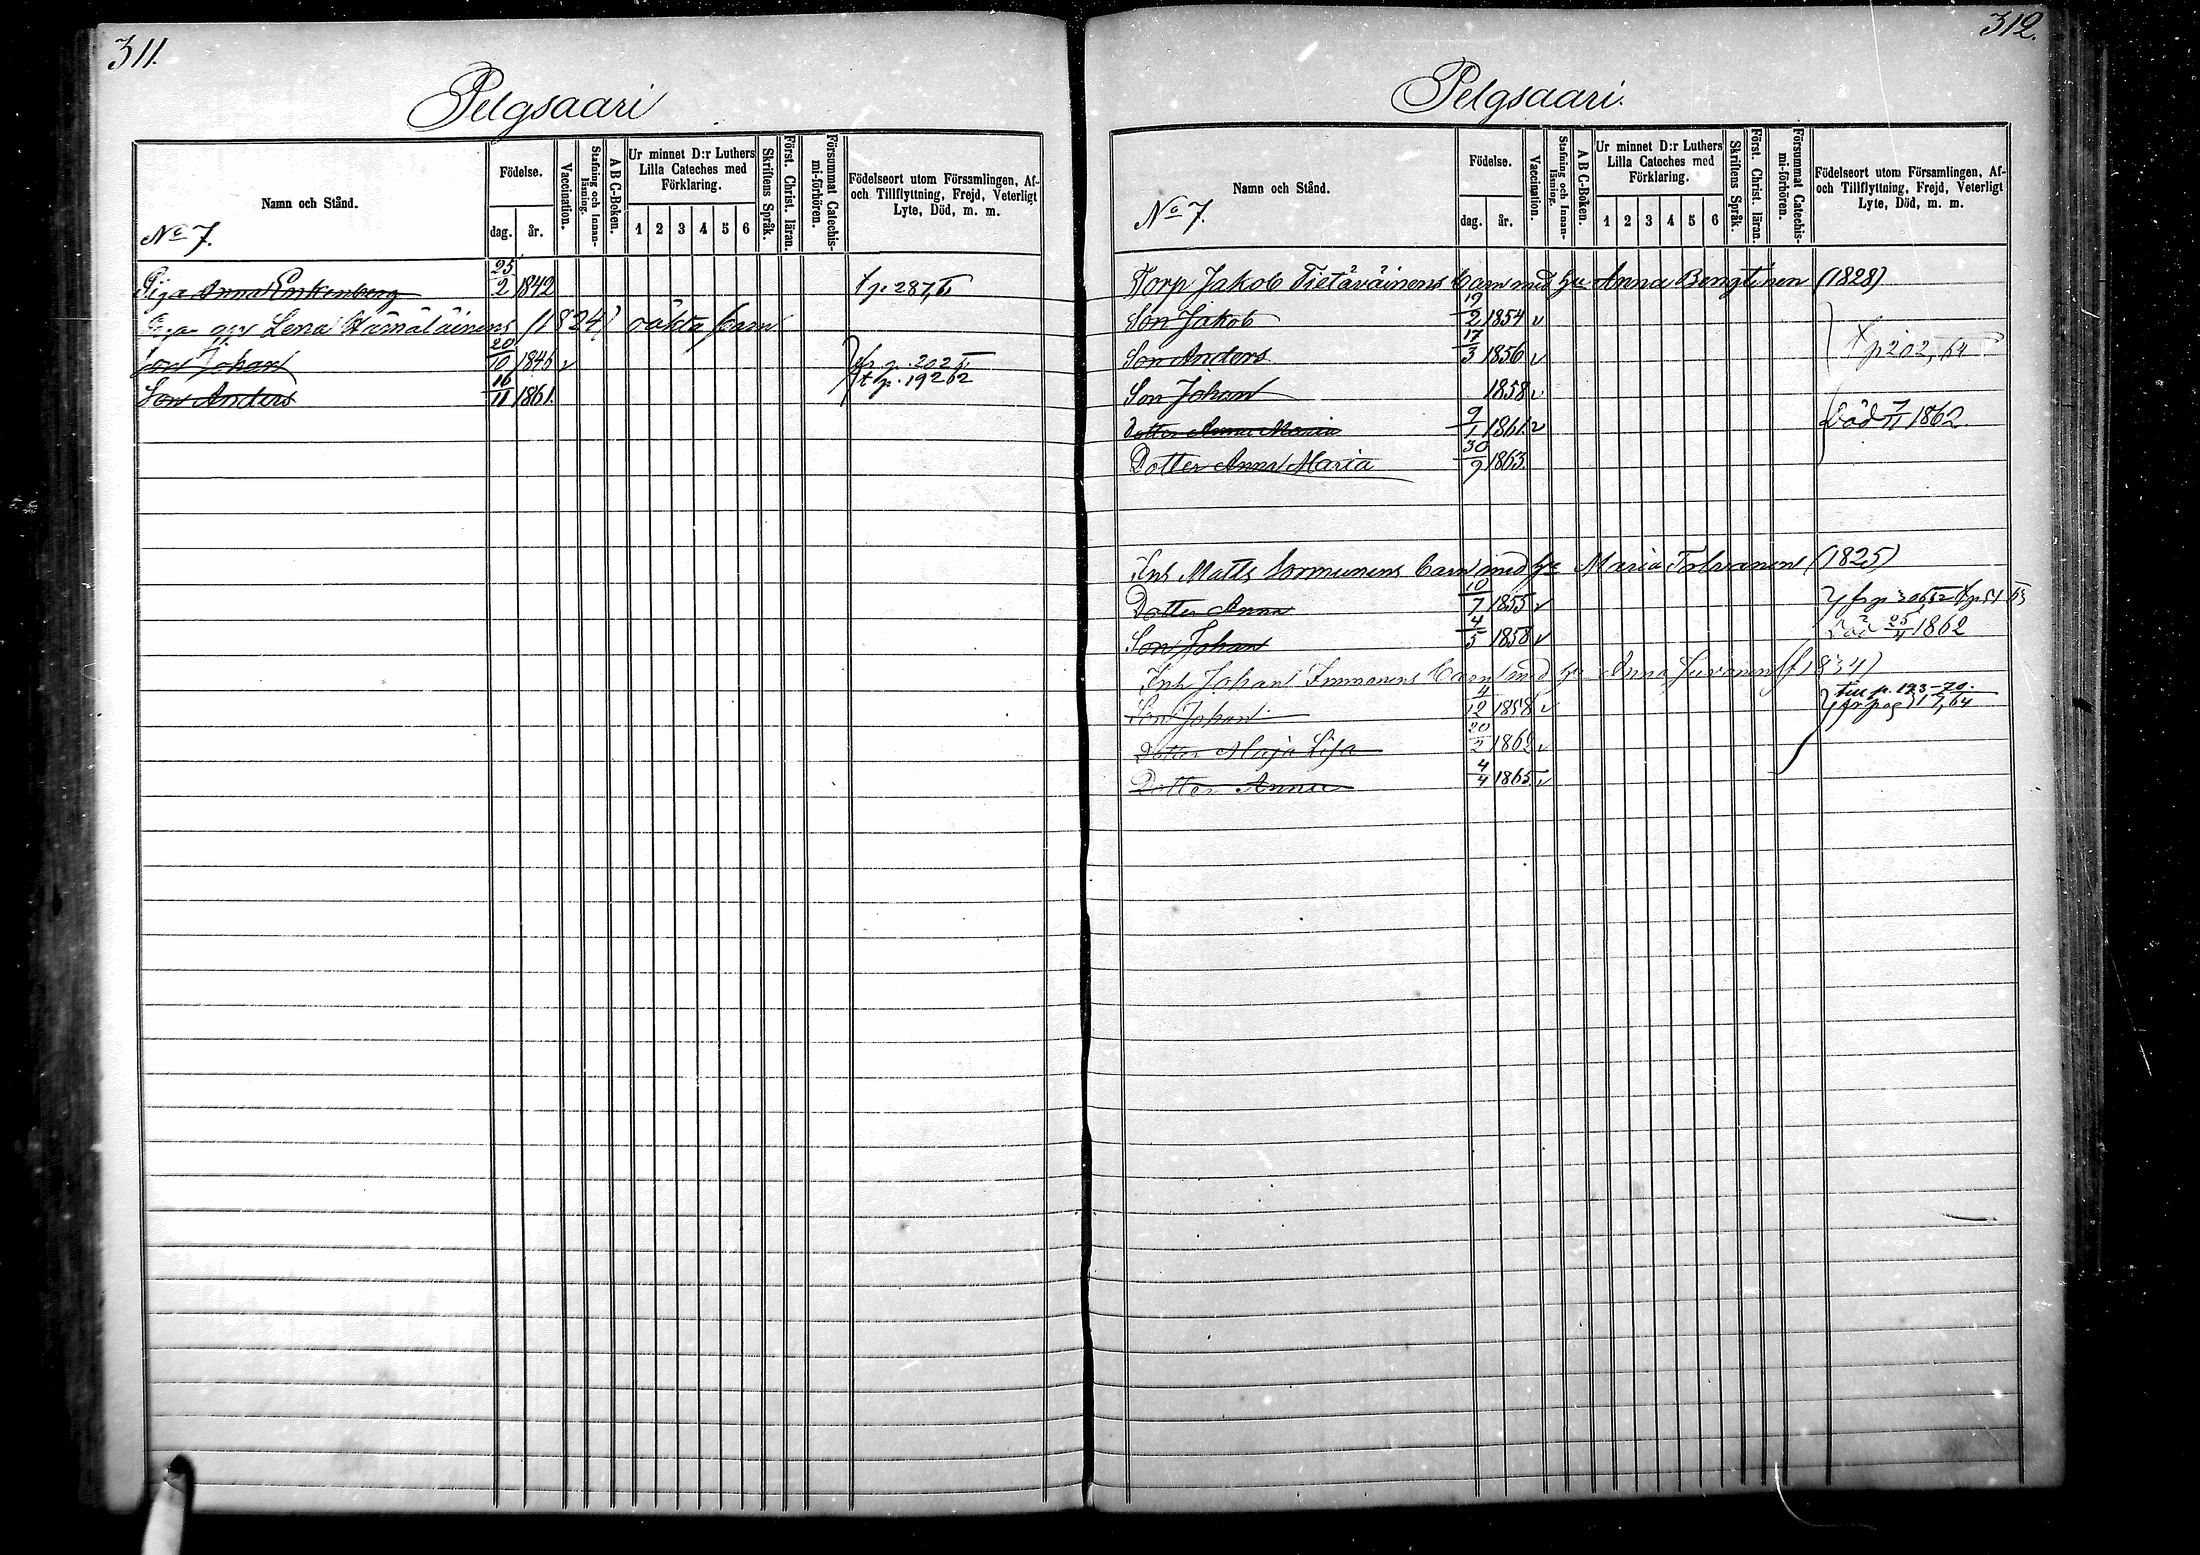 311.
Pelgsaari
Namn och Stånd.
No 7.
Födelse.
dag. år.
Vaccination.
Stafning och Innan-läsning.
A B C-Boken.
Ur minnet D:r Luthers
Lilla Cateches med
Förklaring.
1 2 3 4 5 6
Skriftens Språk.
Först. Christ. läran.
Försummat Catechis-mi-förhören.
Födelseort utom Församlingen, Af-
och Tillflyttning, Frejd, Veterligt
Lyte, Död, m. m.
Piga Anna Enkenberg 25/2 1842
Lena Hämäläinens (1824) oäkta barn
Son Johan 20/10 1846 v fr p. 202
Son Anders 16/11 1861. t p. 192 62
312.
Pelgsaari.
Namn och Stånd.
No 7.
Födelse.
dag. år.
Vaccination.
Stafning och Innan-läsning.
A B C-Boken.
Ur minnet D:r Luthers
Lilla Cateches med
Förklaring.
1 2 3 4 5 6
Skriftens Språk.
Först. Christ. läran.
Försummat Catechis-mi-förhören.
Födelseort utom Församlingen, Af-
och Tillflyttning, Frejd, Veterligt
Lyte, Död, m. m.
Torp Jakob Tietäväinens barn med hu Anna Bengtinen (1828)
Son Jakob 19/2 1854 v
Son Anders 17/3 1856 v p 202, 64
Son Johan 1858 v
Dotter Anna Maria 9/1 1861. v Död 7/11 1862.
Dotter Anna Maria 30/9 1863.
Inh Matts Sormunens barn med hu Maria Tolvanen (1825)
Dotter Anna 10/7 1855 v
Son Johan 4/5 1858 v Död 25/4 1862
Inh Johan Immonens barn med hu Anna Juvonen (1834)
till p. 193-70.
Son Johan 4/12 1858 v fr pag 317, 64
Dotter Maja Lisa 20/2 1862 v
Dotter Anna 4/4 1865. v